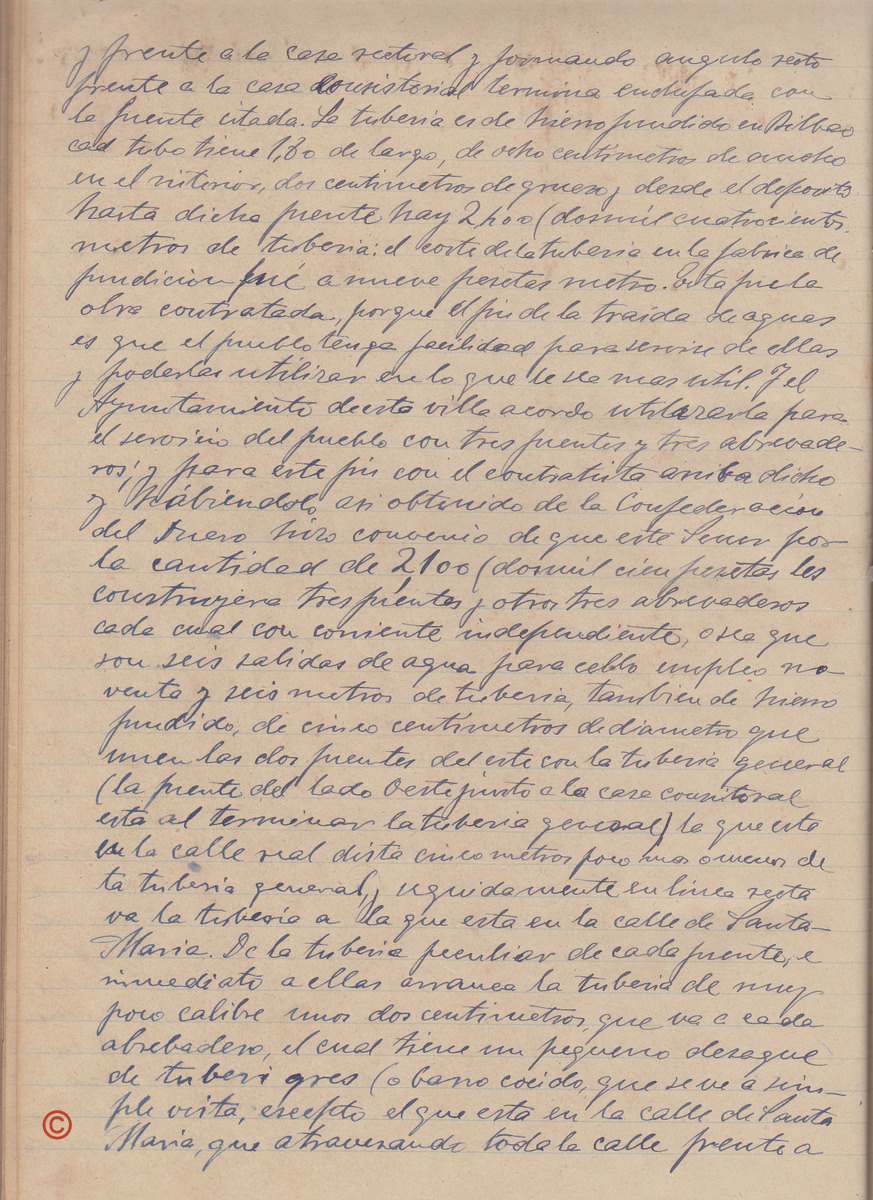 y frente a la casa rectoral y formando angulo recto
frente a la casa Consistorial termina enchufada con
la fuente citada. La tuberia es de hierro fundido en Bilbao
cad tubo tiene 1,80 de largo, de ocho centimetros de ancho
en el interior, dos centimetros de grueso y desde el deposito
hasta dicha fuente hay 2400 (dosmil cuatrocientos
metros de tuberia: el coste de la tuberia en la fabrica de
fundicion fué a nueve pesetas metro. Esta fue la
obra contratada, porque el fin de la traida de aguas
es que el pueblo tenga facilidad para servirse de ellas
y poderlas utilizar en lo que le sea mas util. Y el
Ayuntamiento de esta villa acordo utilizarla para
el servicio del pueblo con tres fuentes y tres abrevade-
ros; y para este fin con el contratista arriba dicho
y habiendolo asi obtenido de la Confederacion
del Duero hizo convenio de que este Señor por
la cantidad de 2,100 (dosmil cien pesetas les
construyera tres fuentes y otros tres abrevaderos
cada cual con corriente independiente, o sea que
son seis salidas de agua para cello empleo no
venta y seis metros de tuberia, tambien de hierro
fundido, de cinco centimetros de diametro que
unen las dos fuentes del este con la tuberia general
(la fuente del lado Oeste junto a la casa consitoral
esta al terminar la tuberia general) la que esta
en la calle real dista cinco metros poco mas o menos de
la tuberia general, y seguidamente en linea recta
va la tuberia a la que esta en la calle de Santa-
Maria. De la tuberia peculiar de cada fuente, e
inmediato a ellas arranca la tuberia de muy
poco calibre unos dos centimetros, que va a cada
abrebadero, el cual tiene un pequeno desague
de tuberi gres (o barro cocido, que se ve a sim-
ple vista, escepto el que esta en la calle de Santa
Maria, que atravesando toda la calle frente a
©